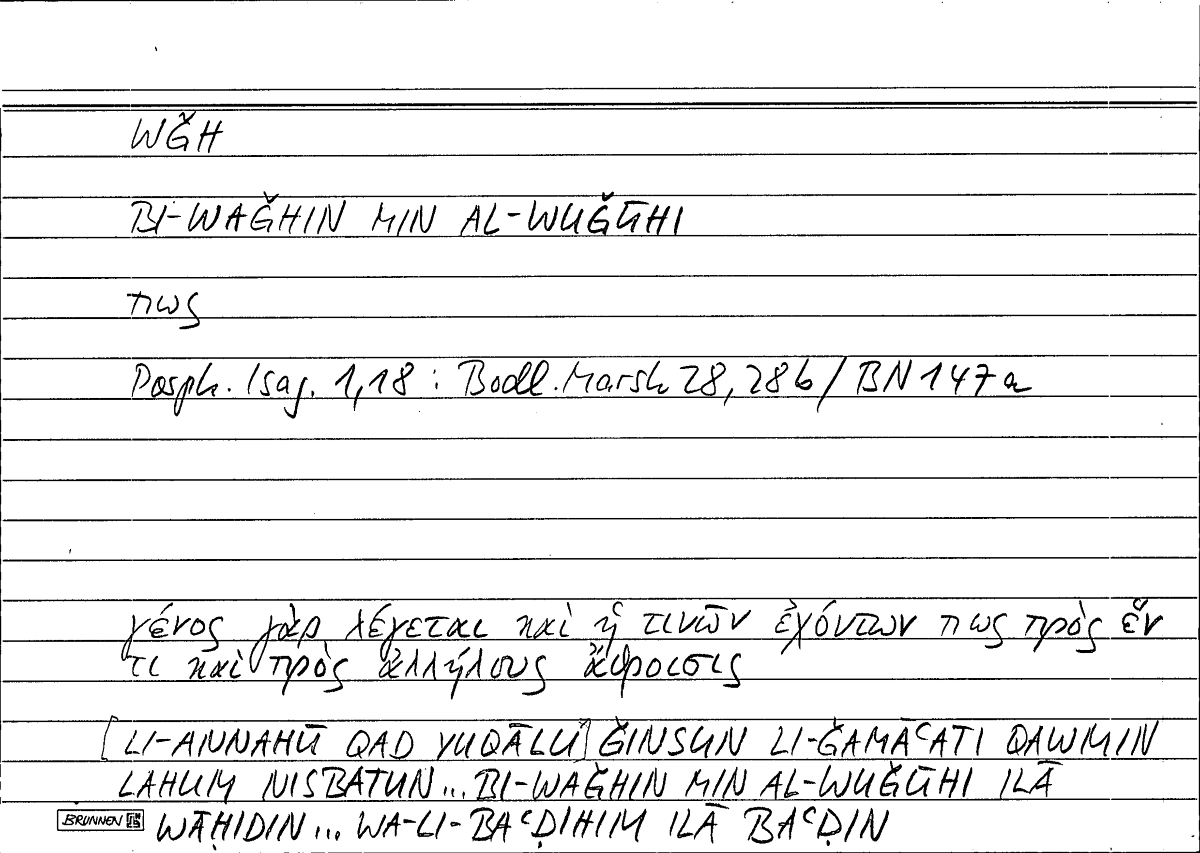 WǦH
BI-WAǦHIN MIN AL-WUǦŪHI
πως
Porph. Isag. 1,18 : Bodl. Marsh 28, 28b / BN 147a
γένος γὰρ λέγεται καὶ ἡ τινῶν ἐχόντων πως πρὸς ἕν
τι καὶ πρὸς ἀλλήλους ἄθροισις
[LI-ANNAHŪ QAD YUQĀLU] ǦINSUN LI-ǦAMĀʿATI QAWMIN
LAHUM NISBATUN... BI-WAǦHIN MIN AL-WUǦŪHI ILĀ
BRUNNEN WĀḤIDIN... WA-LI-BAʿḌIHIM ILĀ BAʿḌIN